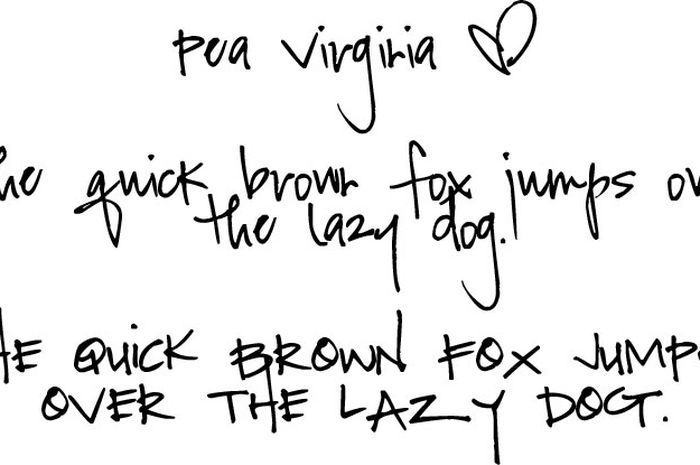 pea virginia ♡
he quick brown fox jumps ov
the lazy dog.
HE QUICK BROWN FOX JUMP
OVER THE LAZY DOG.